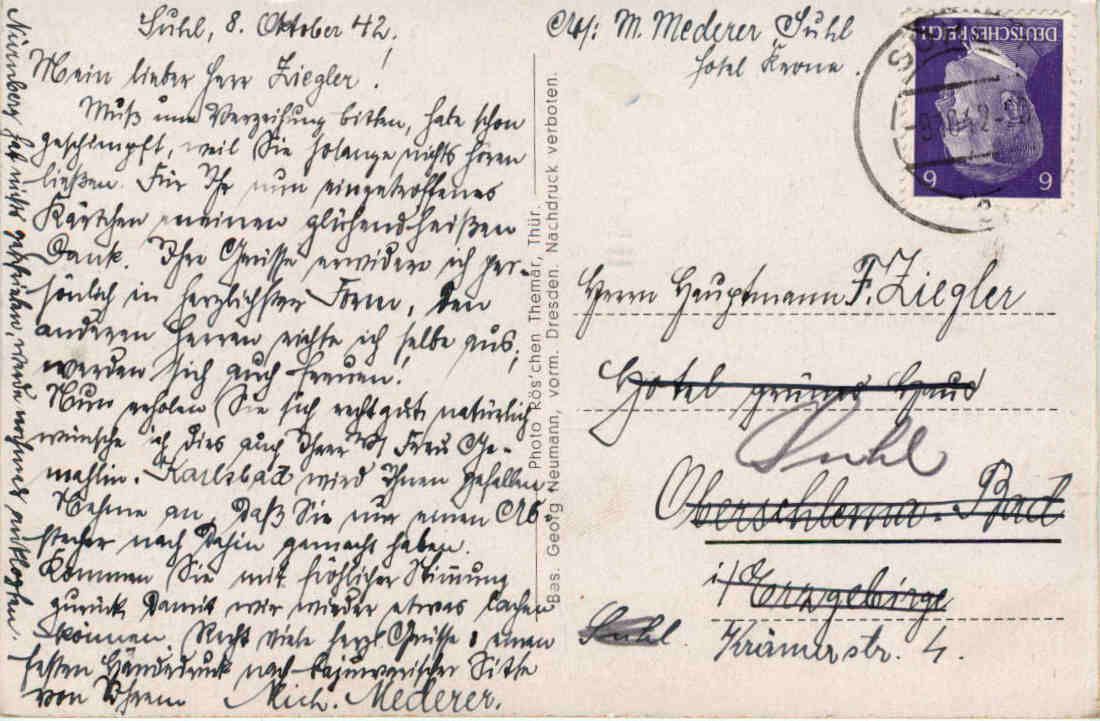 Suhl, 8. Oktober 42.
Mein lieber Herr Ziegler!
Muß um Verzeihung bitten, habe schon
geschimpft, weil Sie solange nichts hören
ließen. Für Ihr nun eingetroffenes
Kärtchen meinen glühendheißen
Dank. Ihre Grüsse erwidere ich per-
sönlich in herzlichster Form, den
anderen Herren richte ich selbe aus;
werden sich auch freuen!
Nun erholen Sie sich recht gut, natürlich
wünsche ich dies auch Ihrer Frau Ge-
mahlin. Karlsbad wird Ihnen gefallen
Nehme an, daß Sie nur einen Ab-
stecher nach dahin gemacht haben.
Kommen Sie mit fröhlicher Stimmung
zurück damit wir wieder etwas lachen
können. Recht viele herzl. Grüsse u. einen
festen Händedruck nach bajuwarischer Sitte
von Ihrem Mich. Mederer.
Nürnberg hat nichts geschrieben, werde nochmals
Photo Rös'chen Themar, Thür.
Bas. Georg Neumann, vorm. Dresden. Nachdruck verboten.
Abs: M. Mederer Suhl
Hotel Krone.
DEUTSCHES REICH
6 6
Herrn Hauptmann F. Ziegler
Hotel grünes Haus
Suhl
Oberschlema-Bad
i/Erzgebirge
Suhl.
Krämerstr. 4.